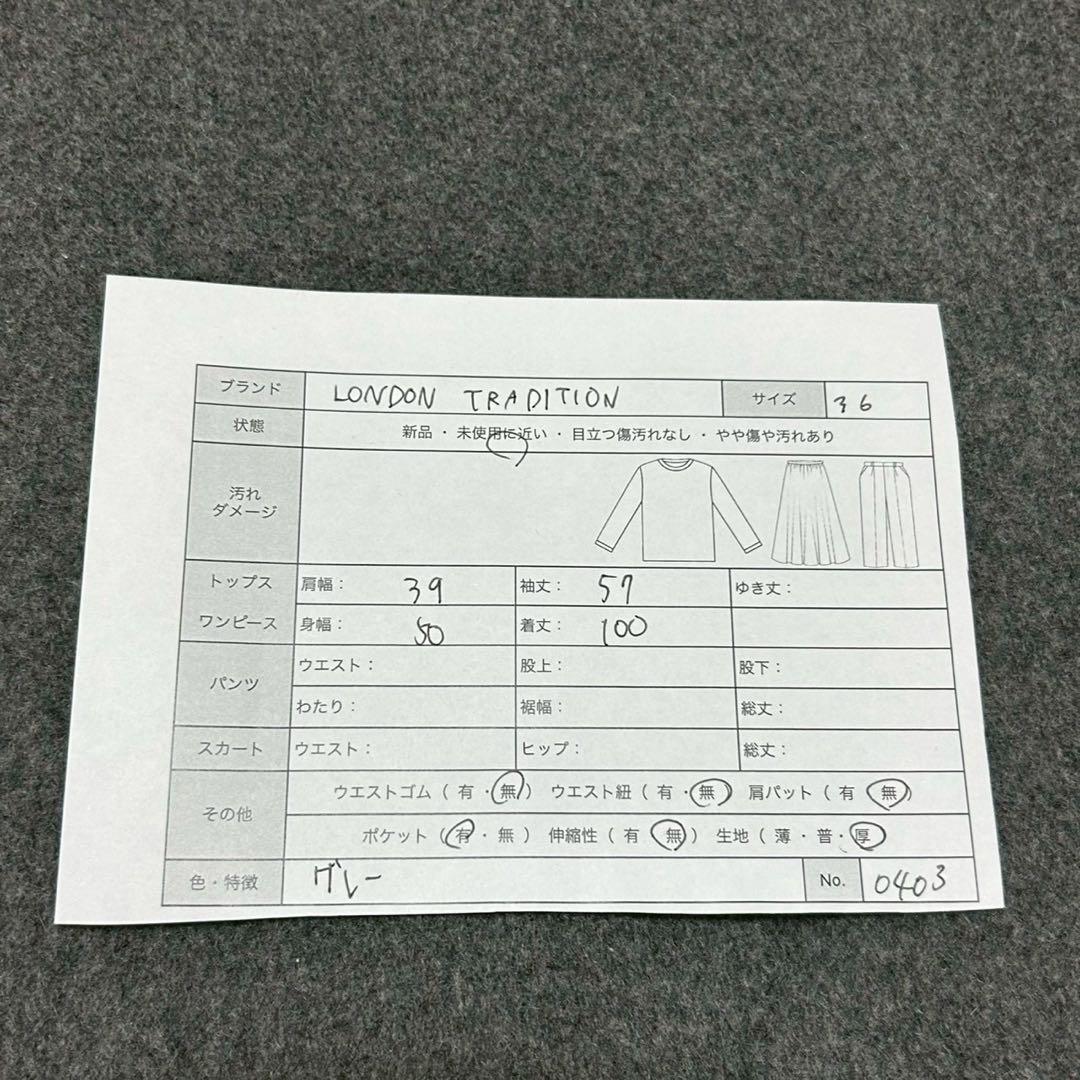 ブランド LONDON TRADITION サイズ 36
状態 新品 ・ 未使用に近い ・ 目立つ傷汚れなし ・ やや傷や汚れあり
汚れ
ダメージ
トップス 肩幅： 39 袖丈： 57 ゆき丈：
ワンピース 身幅： 50 着丈： 100
パンツ
ウエスト： 股上： 股下：
わたり： 裾幅： 総丈：
スカート ウエスト： ヒップ： 総丈：
その他
ウエストゴム（ 有 ・ 無 ） ウエスト紐（ 有 ・ 無 ） 肩パット（ 有 無 ）
ポケット（ 有 ・ 無 ） 伸縮性（ 有 無 ） 生地（ 薄 ・ 普 ・ 厚 ）
色・特徴 グレー No. 0403